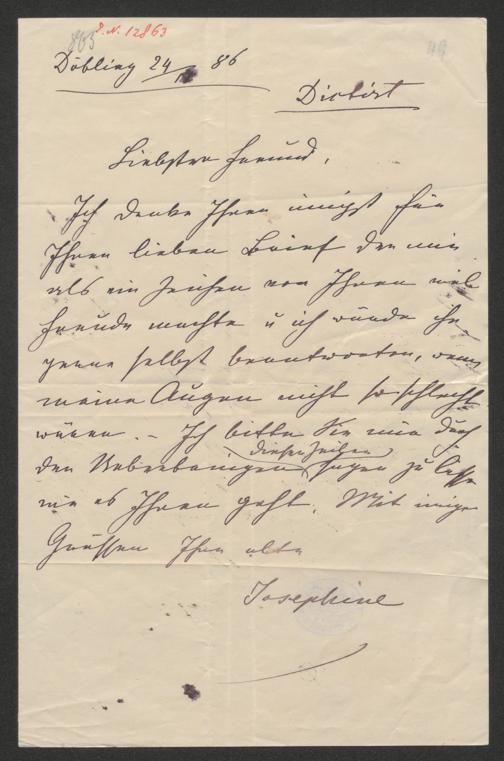 865
I. N. 12863
49
Döbling 24/12 86
Dictirt
Liebster Freund,
Ich danke Ihnen innigst für
Ihren lieben Brief der mir
als ein Zeichen von Ihnen viel
Freude machte u ich würde ihn
gerne selbst beantworten, wenn
meine Augen nicht so schlecht
wären. – Ich bitte Sie mir durch
dieser Zeilen
den Ueberbringer sagen zu lassen
wie es Ihnen geht. Mit innigen
Grüssen Ihre alte
Josephine